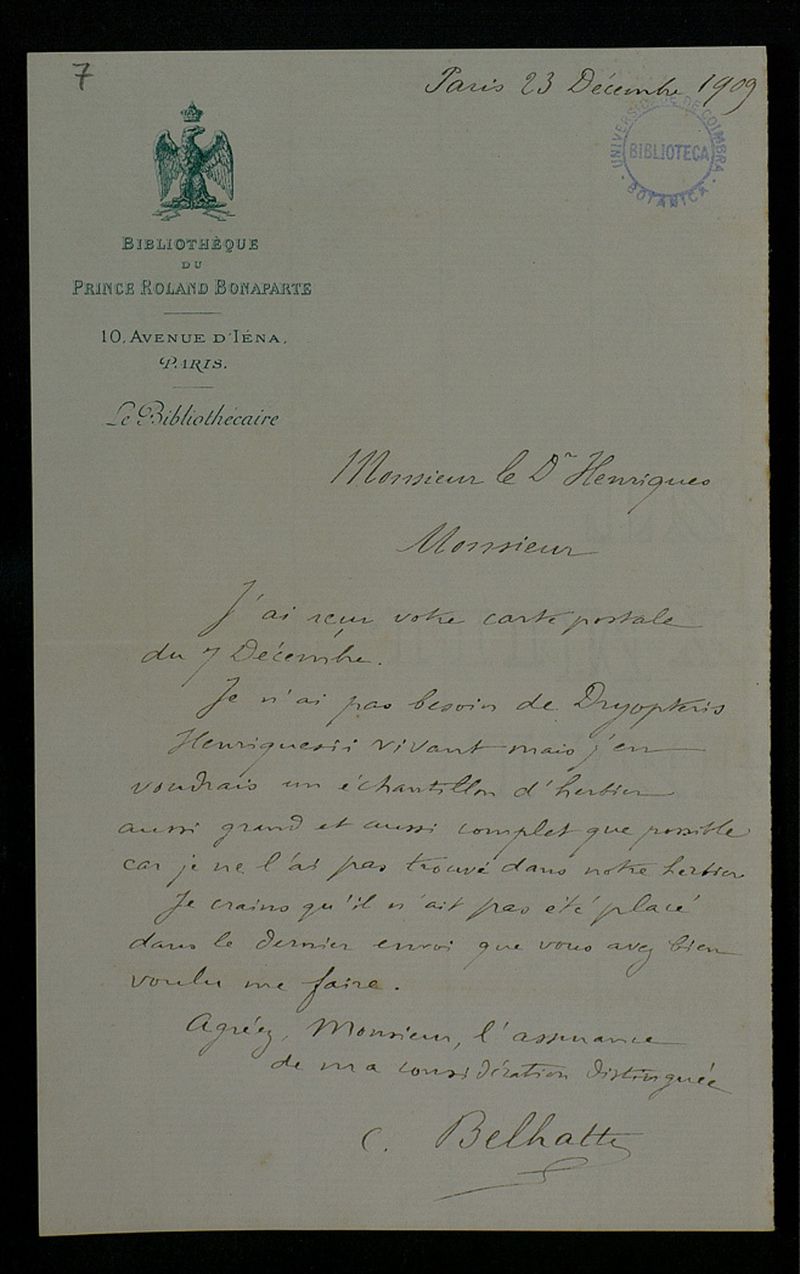 7
Paris 23 Décembre 1909
UNIVERSIDADE DE COIMBRA
BIBLIOTECA
BOTANICA
BIBLIOTHÈQUE
DU
PRINCE ROLAND BONAPARTE
10, AVENUE D'IÉNA,
PARIS.
Le Bibliothécaire
Monsieur le Dr Henriques
Monsieur
J'ai reçu votre carte postale
du 7 Décembre.
Je n'ai pas besoin de Dryopteris
Henriquesii vivant mais j'en
voudrais un échantillon d'herbier
aussi grand et aussi complet que possible
car je ne l'ai pas trouvé dans notre herbier
Je crains qu'il n'ait pas été placé
dans le dernier envoi que vous avez bien
voulu me faire.
Agréez, Monsieur, l'assurance
de ma considération distinguée
C. Belhatte